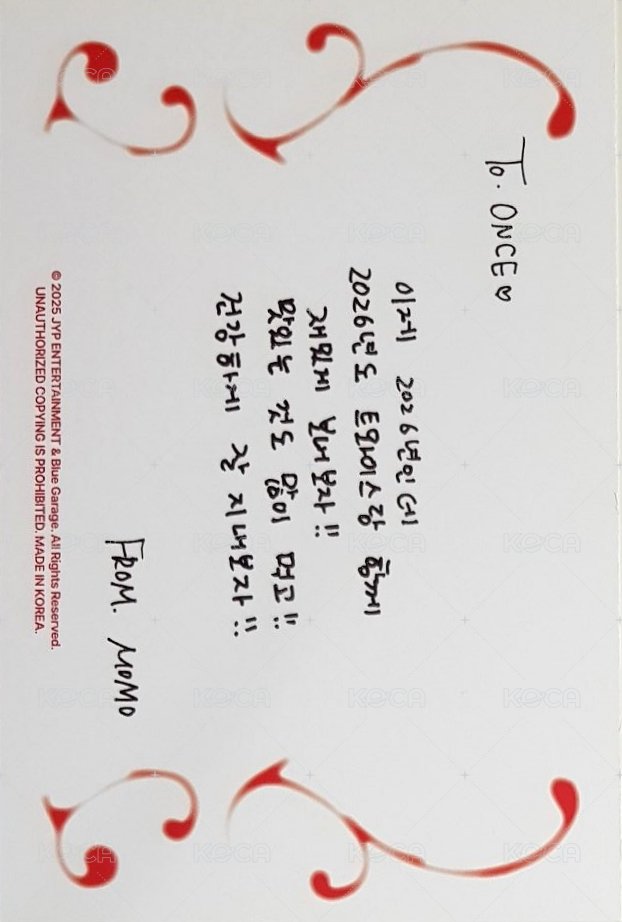 To. ONCE♡
이제 2026년인데
2026년도 트와이스랑 함께
재밌게 보내보자!!
맛있는 것도 많이 먹고!!
건강하게 잘 지내보자!!
FROM. MOMO
© 2025 JYP ENTERTAINMENT & Blue Garage. All Rights Reserved.
UNAUTHORIZED COPYING IS PROHIBITED. MADE IN KOREA.
KOCA